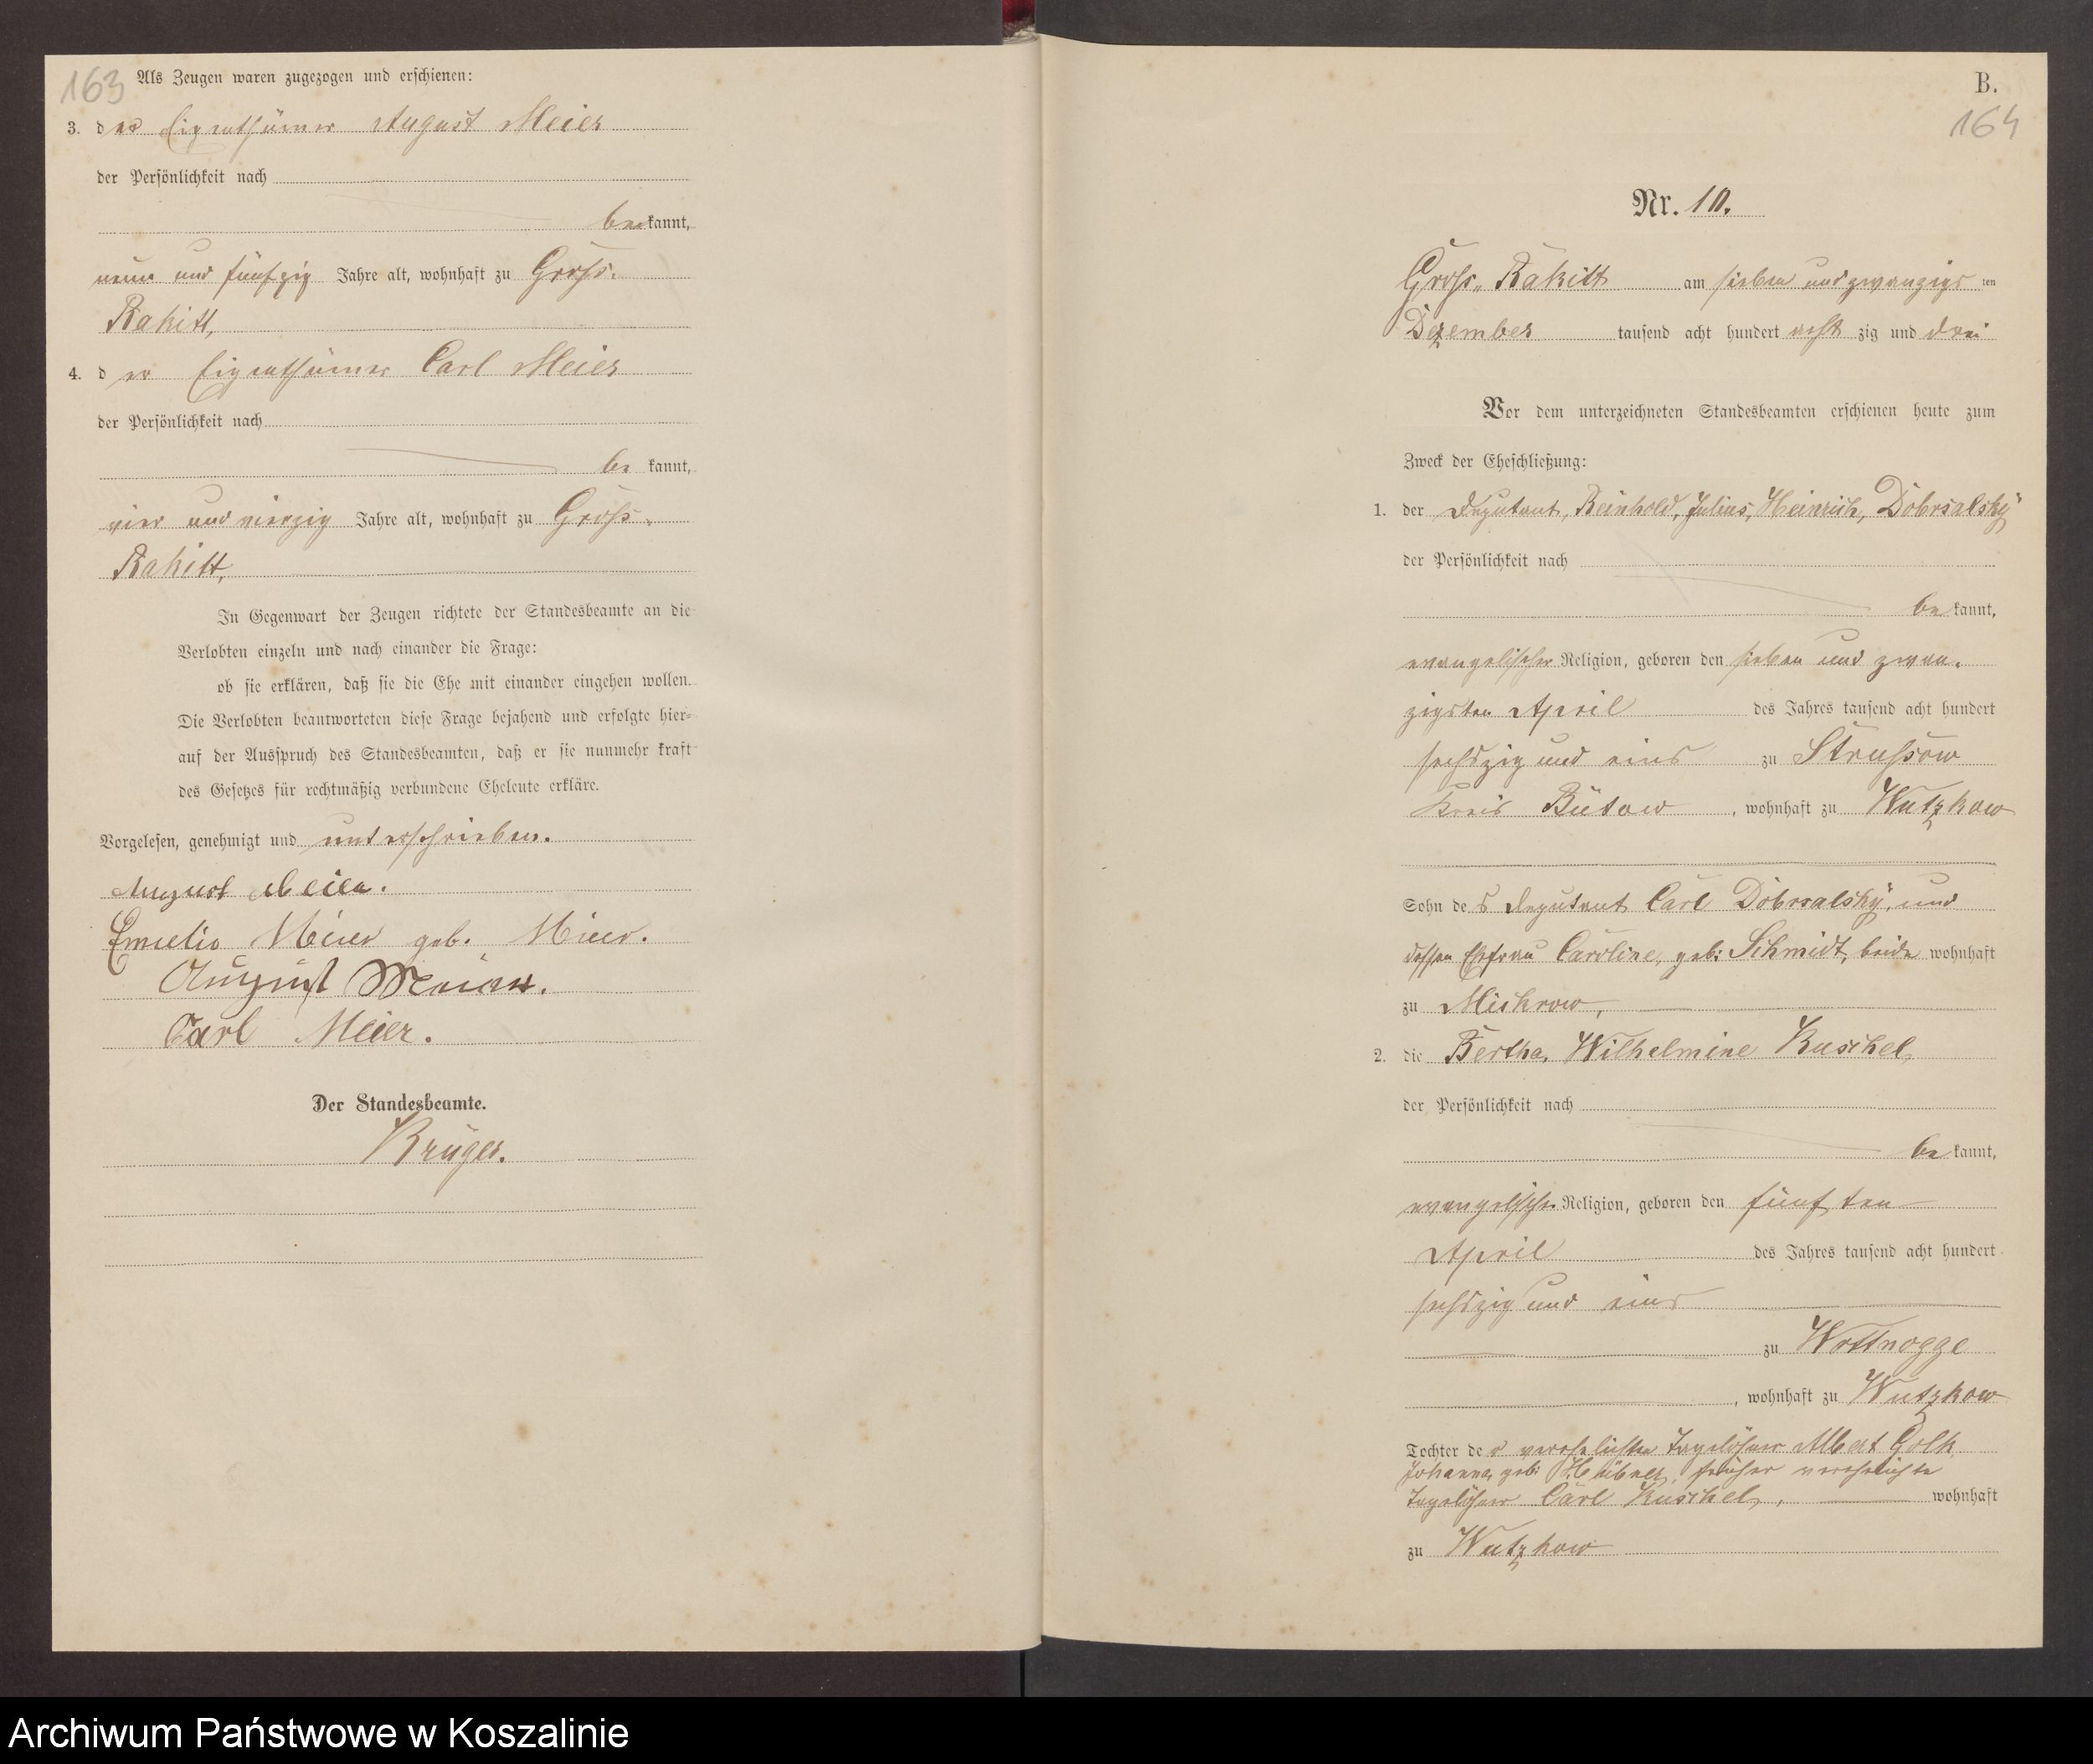 163
Als Zeugen waren zugezogen und erschienen:
3. der Eigenthümer August Meier
der Persönlichkeit nach
bekannt,
neun und fünfzig Jahre alt, wohnhaft zu Gross-
Rakitt,
4. der Eigenthümer Carl Meier
der Persönlichkeit nach
bekannt,
vier und vierzig Jahre alt, wohnhaft zu Gross-
Rakitt,
In Gegenwart der Zeugen richtete der Standesbeamte an die
Verlobten einzeln und nach einander die Frage:
ob sie erklären, daß sie die Ehe mit einander eingehen wollen.
Die Verlobten beantworteten diese Frage bejahend und erfolgte hier-
auf der Ausspruch des Standesbeamten, daß er sie nunmehr kraft
des Gesetzes für rechtmäßig verbundene Eheleute erkläre.
Vorgelesen, genehmigt und unterschrieben.
August Meier.
Emielie Meier geb. Meier.
August Meier.
Carl Meier.
Der Standesbeamte.
Krüger.
B.
164
Nr. 10.
Gross-Rakitt am sieben und zwanzigsten
Dezember tausend acht hundert achtzig und drei
Vor dem unterzeichneten Standesbeamten erschienen heute zum
Zweck der Eheschließung:
1. der Deputant, Reinhold, Julius, Heinrich, Dobrsalsky
der Persönlichkeit nach
bekannt,
evangelischer Religion, geboren den sieben und zwan-
zigsten April des Jahres tausend acht hundert
sechszig und eins zu Strussow
Kreis Bütow, wohnhaft zu Wutzkow
Sohn des Deputant Carl Dobrsalsky, und
dessen Ehefrau Caroline, geb: Schmidt, beide wohnhaft
zu Mickrow,
2. die Bertha, Wilhelmine Kuschel,
der Persönlichkeit nach
bekannt,
evangelischer Religion, geboren den fünften
April des Jahres tausend acht hundert
sechszig und eins
zu Wottnogge
, wohnhaft zu Wutzkow
Tochter der verehelichten Tagelöhner Albert Golk
Johanna, geb: Hübner, früher verehelichte
Tagelöhner Carl Kuschel, wohnhaft
zu Wutzkow
Archiwum Państwowe w Koszalinie